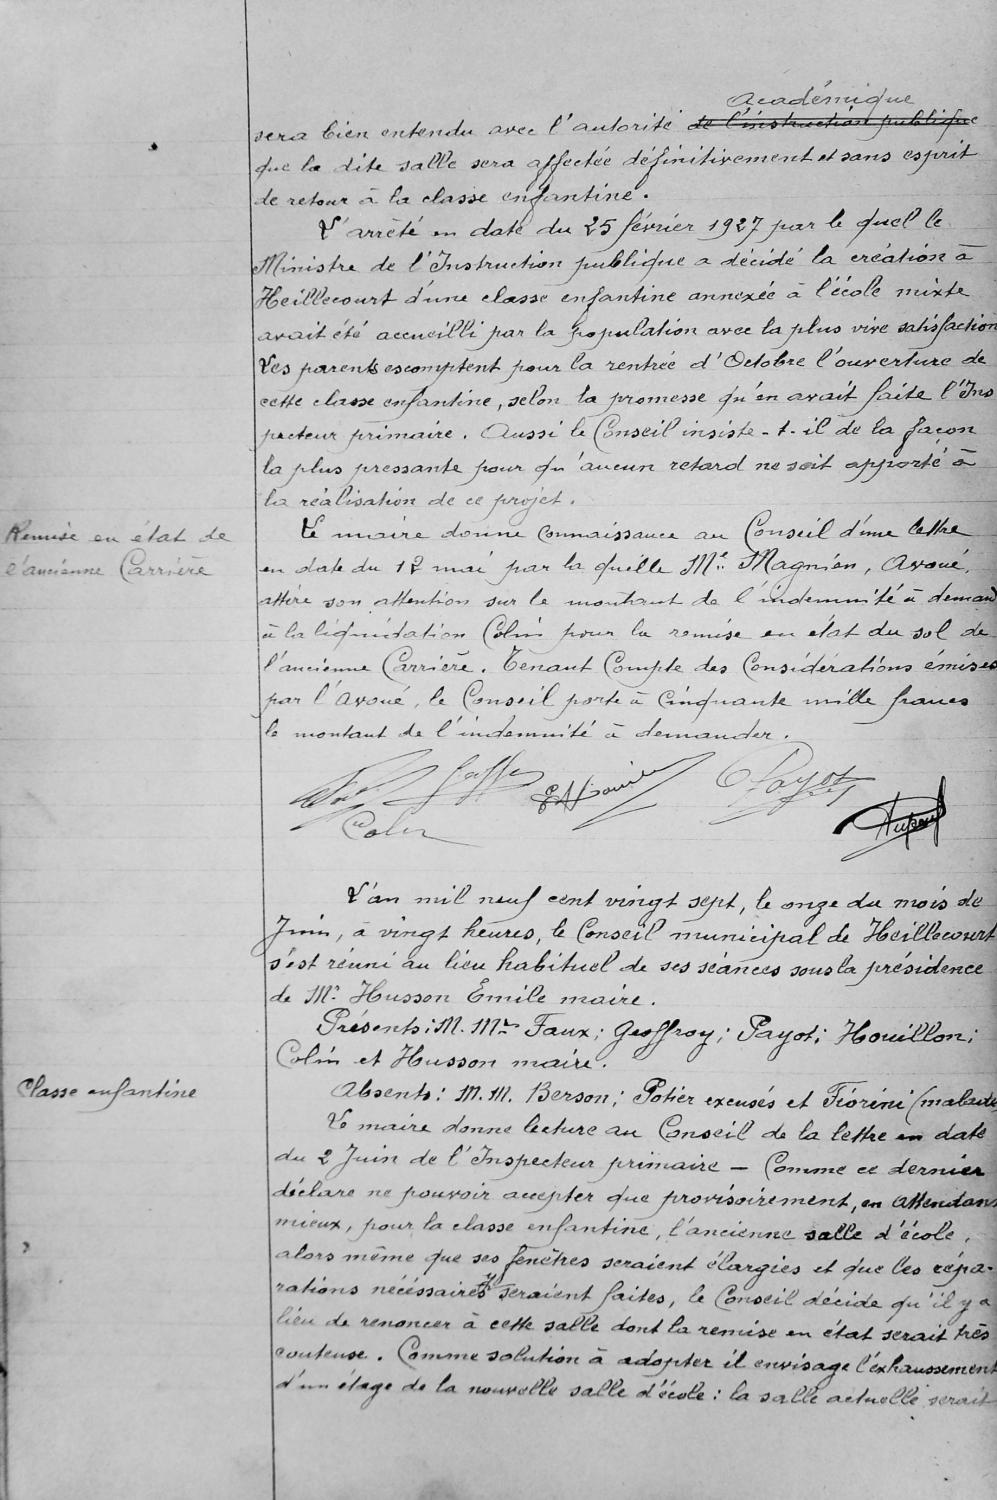 Académique
sera bien entendu avec l'autorité de l'instruction publique
que la dite salle sera affectée définitivement et sans esprit
de retour à la classe enfantine.
L'arrêté en date du 25 février 1927 par le quel le
Ministre de l'Instruction publique a décidé la création à
Heillecourt d'une classe enfantine annexée à l'école mixte
avait été accueilli par la population avec la plus vive satisfaction
Les parents escomptent pour la rentrée d'Octobre l'ouverture de
cette classe enfantine, selon la promesse qu'en avait faite l'Ins
pecteur primaire. Aussi le Conseil insiste-t-il de la façon
la plus pressante pour qu'aucun retard ne soit apporté à
la réalisation de ce projet.
Remise en état de
l'ancienne Carrière
Le maire donne connaissance au Conseil d'une lettre
en date du 12 mai par la quelle Me Magnien, Avoué,
attire son attention sur le montant de l'indemnité à demand
à la liquidation Colin pour la remise en état du sol de
l'ancienne Carrière. Tenant Compte des Considérations émises
par l'Avoué, le Conseil porte à Cinquante mille francs
le montant de l'indemnité à demander.
Payot
Colin
L'an mil neuf cent vingt sept, le onze du mois de
Juin, à vingt heures, le Conseil municipal de Heillecourt
s'est réuni au lieu habituel de ses séances sous la présidence
de Mr Husson Emile maire.
Présents: M. Mrs Faux; Geoffroy; Payot; Houillon;
Colin et Husson maire.
Classe enfantine
Absents: M.M. Berson; Potier excusés et Fiorini (malade
Le maire donne lecture au Conseil de la lettre en date
du 2 Juin de l'Inspecteur primaire — Comme ce dernier
déclare ne pouvoir accepter que provisoirement, en attendant
mieux, pour la classe enfantine, l'ancienne salle d'école,
alors même que ses fenêtres seraient élargies et que les répa-
rations nécéssaires y seraient faites, le Conseil décide qu'il y a
lieu de renoncer à cette salle dont la remise en état serait très
couteuse. Comme solution à adopter il envisage l'éxhaussement
d'un étage de la nouvelle salle d'école: la salle actuelle serait